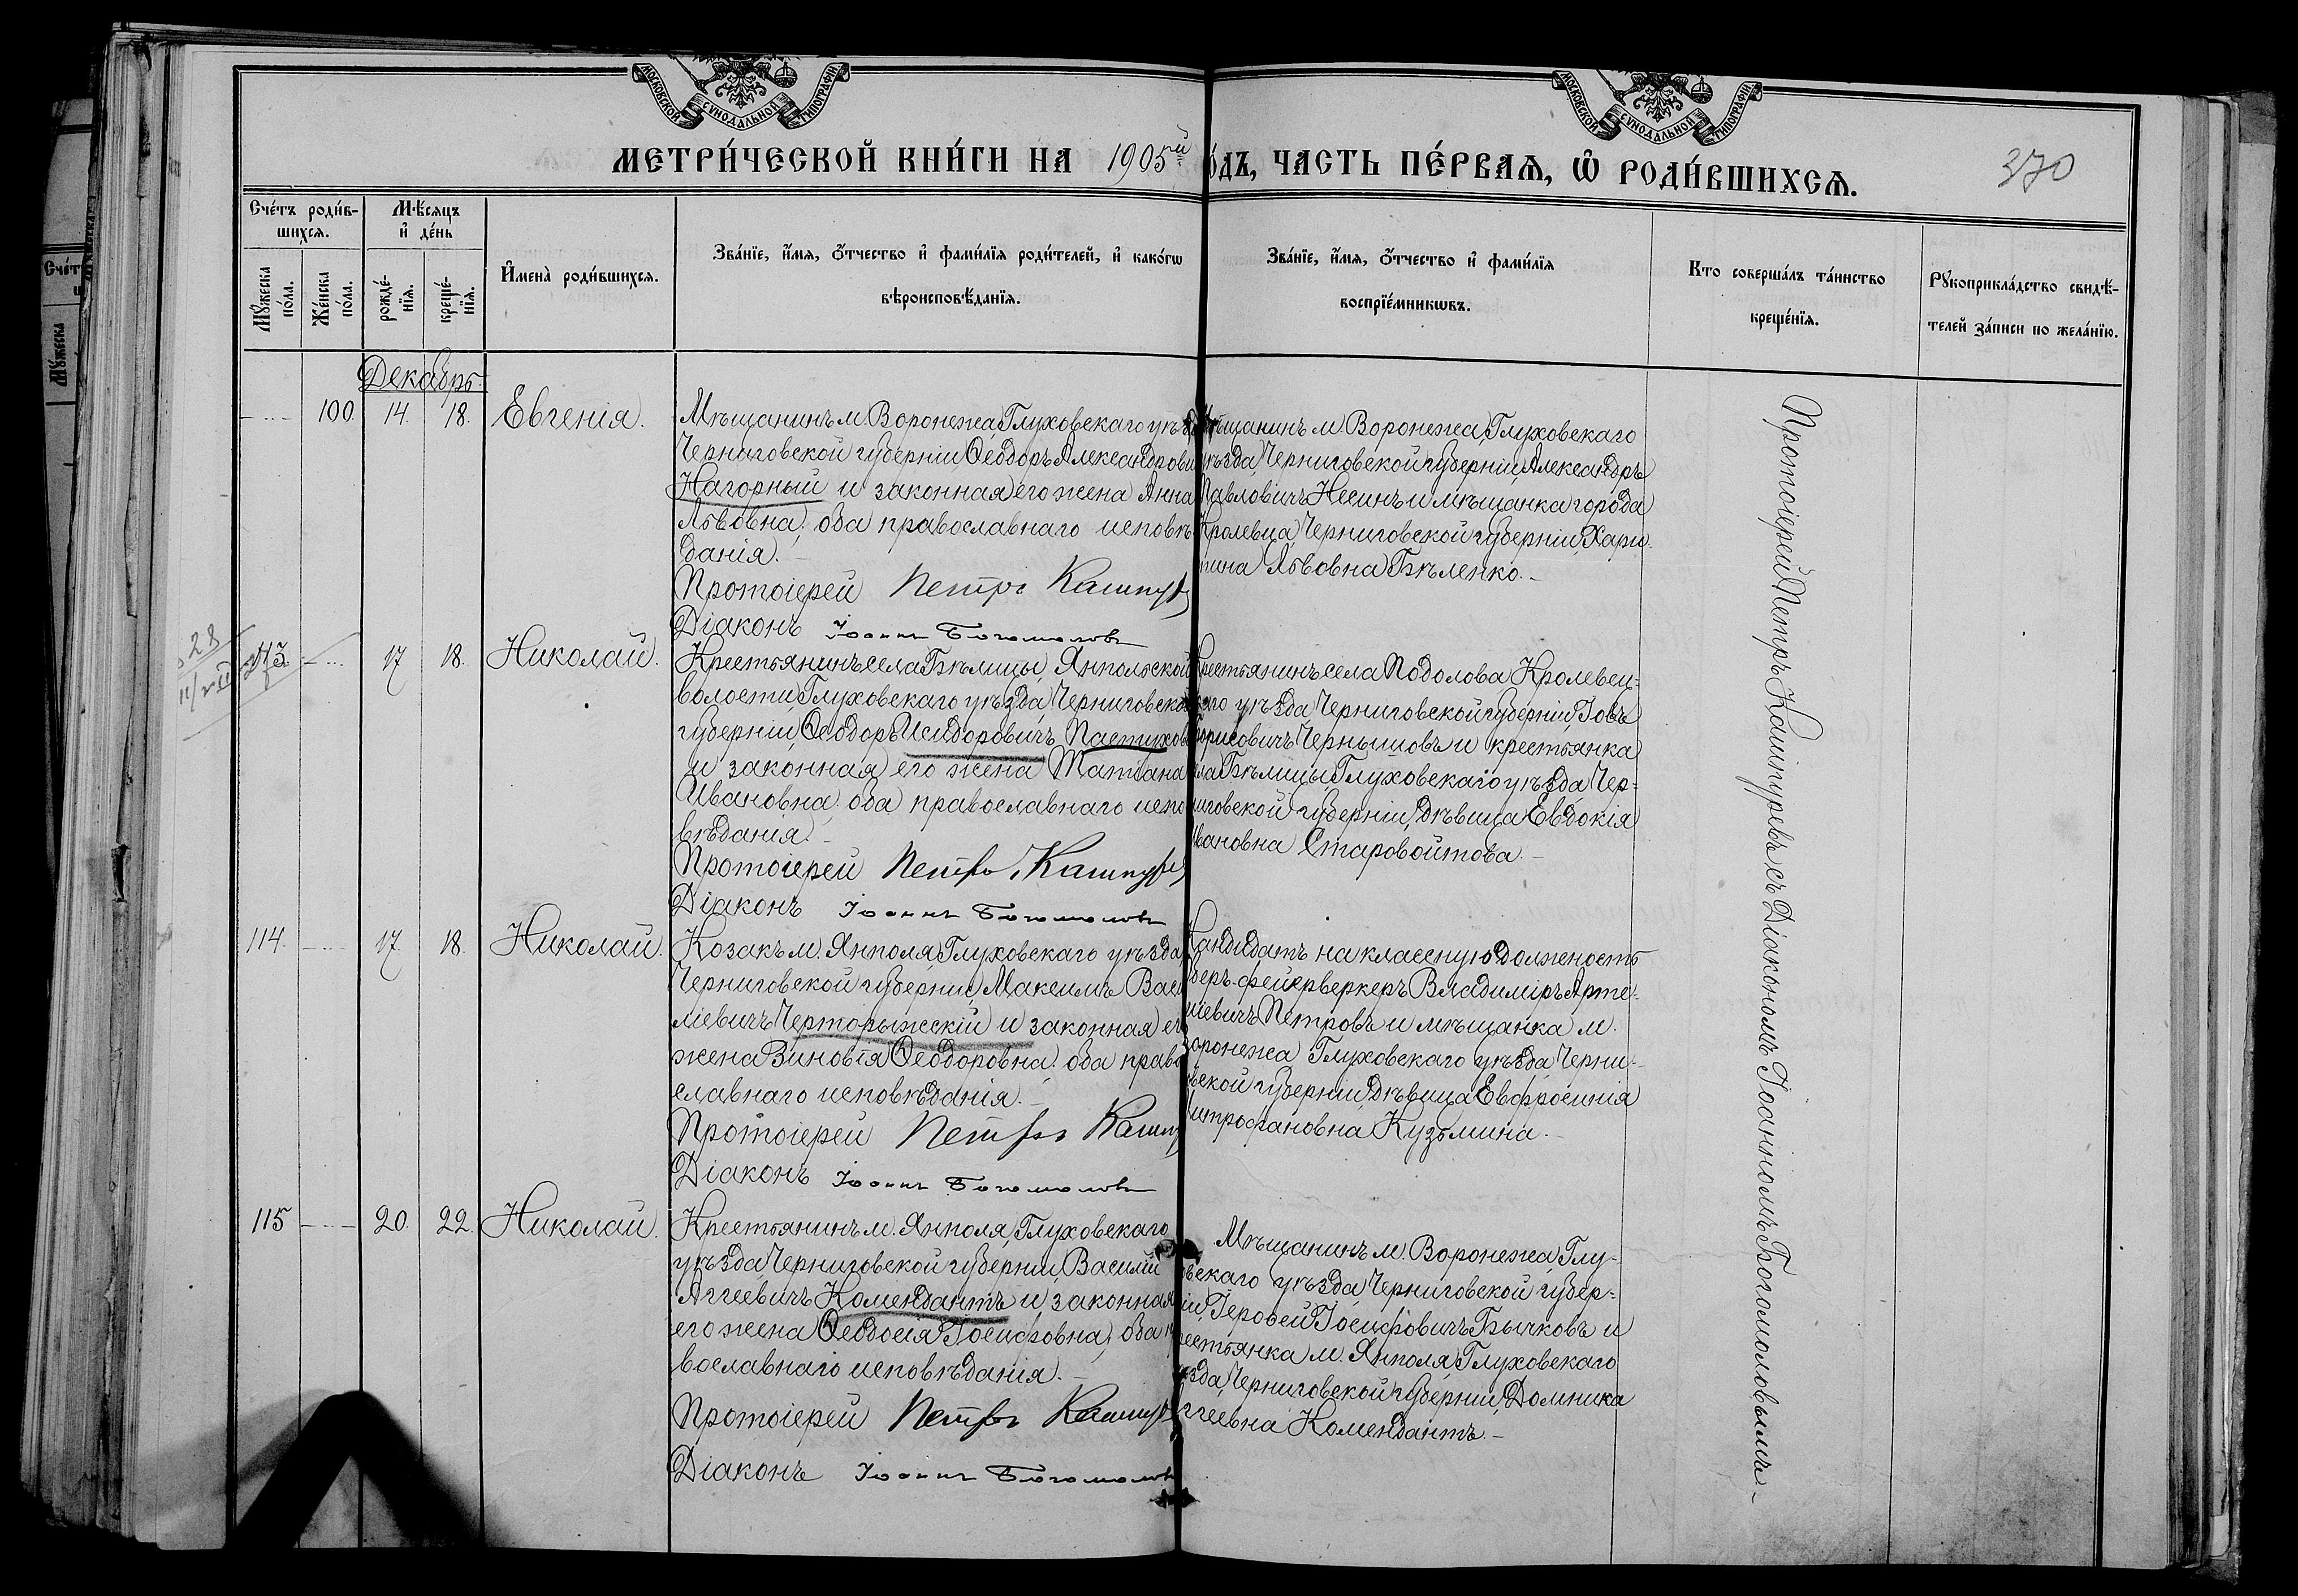 МОСКОВСКОЙ СѴНОДАЛЬНОЙ ТИПОГРАФІИ
МОСКОВСКОЙ СѴНОДАЛЬНОЙ ТИПОГРАФІИ
МЕТРИ́ЧЕСКОЙ КНИ́ГИ НА 1905й
о́дъ, ЧАСТЬ ПЕ́РВАѦ, Ѽ РОДИ́ВШИХСѦ.
370
Сче́тъ роди́в-
шихсѧ.
Мѣ́сѧцъ
и҆ де́нь
Мꙋ́жеска
по́ла.
Же́нска
по́ла.
рожде́-
нїѧ.
креще́-
нїѧ.
И҆мена̀ роди́вшихсѧ.
Зва́нїе, и҆́мѧ, ѻ҆́тчество и҆ фами́лїѧ роди́телей, и҆ како́гѡ
вѣроисповѣ́данїѧ.
Зва́нїе, и҆́мѧ, ѻ҆́тчество и҆ фами́лїѧ
воспрїе́мникѡвъ.
Кто соверша́лъ та́инство
креще́нїѧ.
Рꙋкоприкла́дство свидѣ́-
телей за́писи по жела́нїю.
Декабрь
100. 14. 18. Евгенія.
Мѣщанинъ м. Воронежа, Глуховскаго уѣз
Черниговской губерніи Ѳеодоръ Александрови
Нагорный и законная его жена Анна
Львовна, оба православнаго исповѣ
данія. -
Протоіерей Петръ Кашпур
Діаконъ Іоаннъ Богомоловъ
щанинъ м. Воронежа, Глуховскаго
уѣзда, Черниговской губерніи, Александръ
Павловичъ Несинъ и мѣщанка города
Кролевца, Черниговской губерніи, Хари
тина Львовна Бѣленко. -
28
113 17 18. Николай.
Крестьянинъ села Бѣлицы, Янпольской
волости, Глуховскаго уѣзда, Черниговско
губерніи, Ѳеодоръ Исидоровичъ Пастухов
и законная его жена Татіана
Ивановна, оба православнаго испо
вѣданія. -
Протоіерей Петръ Кашпур
Діаконъ Іоаннъ Богомоловъ
рестьянинъ села Подолова Кролевец-
каго уѣзда, Черниговской губерніи, Іовъ
Борисовичъ Чернышовъ и крестьянка
ла Бѣлицы, Глуховскаго уѣзда Чер-
иговской губерніи, дѣвица Евдокія
вановна Старовойтова. -
114. 17 18. Николай.
Козакъ м. Янполя, Глуховскаго уѣзда,
Черниговской губерніи, Максимъ Васи
ліевичъ Черторыжскій и законная ег
жена Зиновія Ѳеодоровна, оба право
славнаго исповѣданія. -
Протоіерей Петръ Кашп
Діаконъ Іоаннъ Богомоловъ
Кандидатъ на классную должность
беръ-фейерверкеръ Владиміръ Арте-
міевичъ Петровъ и мѣщанка м.
оронежа Глуховскаго уѣзда, Черни-
вской губерніи, дѣвица Евфросинія
итрофановна Кузьмина. -
115 20. 22. Николай.
Крестьянинъ м. Янполя, Глуховскаго
уѣзда Черниговской губерніи, Василій
Аггеевичъ Комендантъ и законная
его жена Ѳеодосія Іосифовна, оба п
вославнаго исповѣданія. -
Протоіерей Петръ Кашпур
Діаконъ Іоаннъ Богомолов
Мѣщанинъ м. Воронежа, Глу-
вскаго уѣзда Черниговской губер-
іи, Героѳей Іосифовичъ Бычковъ и
рестьянка м. Янполя, Глуховскаго
ѣзда, Черниговской губерніи, Домника
ггеевна Комендантъ. -
Протоіерей Петръ Кашпуревъ съ Діакономъ Іоанномъ Богомоловымъ. -